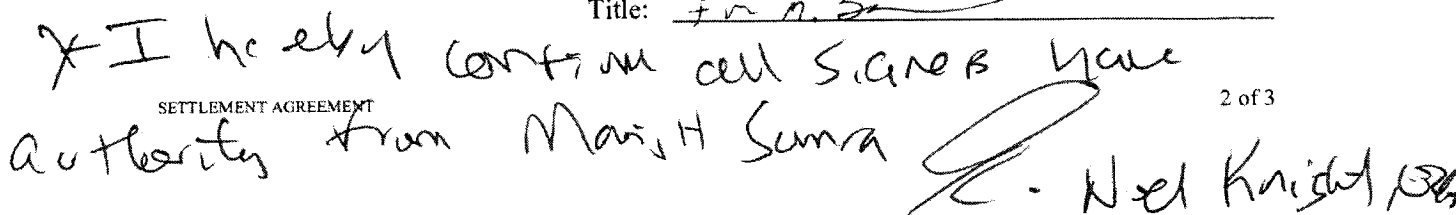 Title:
* I hereby confirm all signers have
SETTLEMENT AGREEMENT
2 of 3
authority from Manish Sumra
- Noel Knight,